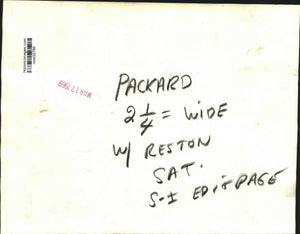 MAR 17 1969
PACKARD
2 1/4 = WIDE
W/ RESTON
SAT.
S-I EDIT PAGE